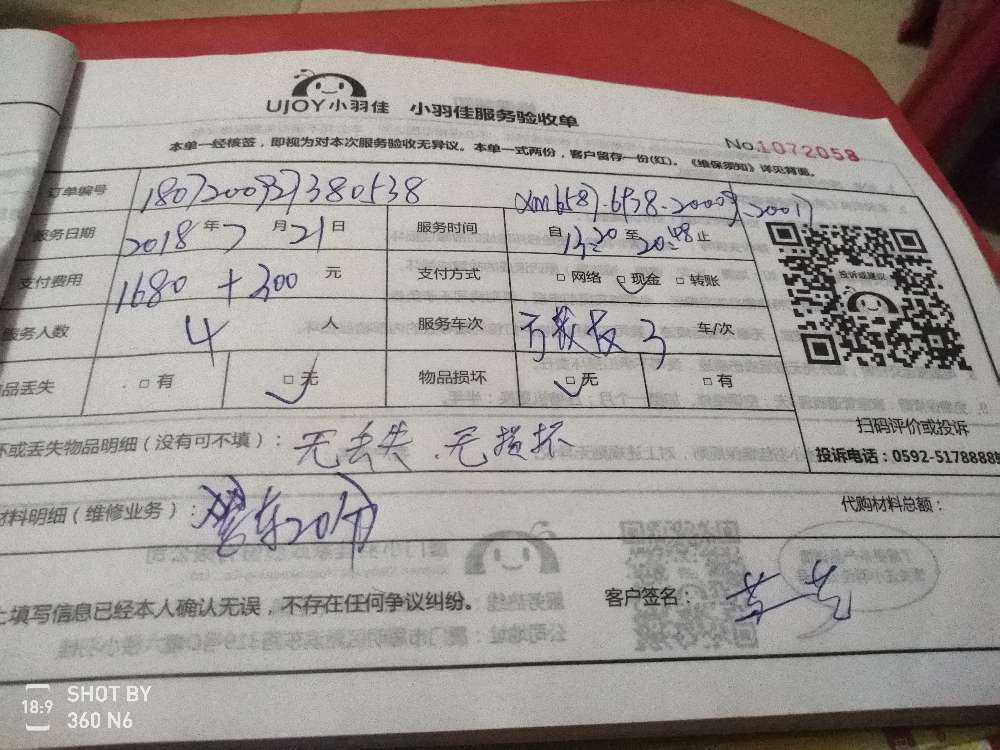 UJOY小羽佳 小羽佳服务验收单
No.1072058
本单一经核签，即视为对本次服务验收无异议。本单一式两份，客户留存一份(红)。《维保须知》详见背面。
订单编号 1807200927380538
服务日期 2018年7月21日 服务时间 自13:20至20:48止
支付费用 1680+200元 支付方式 □网络 □现金 □转账
服务人数 4人 服务车次 3车/次
品丢失 □有 □无 物品损坏 □无 □有
投诉或建议
扫码评价或投诉
坏或丢失物品明细（没有可不填）：无丢失.无损坏
投诉电话：0592-5178888
材料明细（维修业务）： 代购材料总额：
上填写信息已经本人确认无误，不存在任何争议纠纷。 客户签名：
18:9 SHOT BY
360 N6